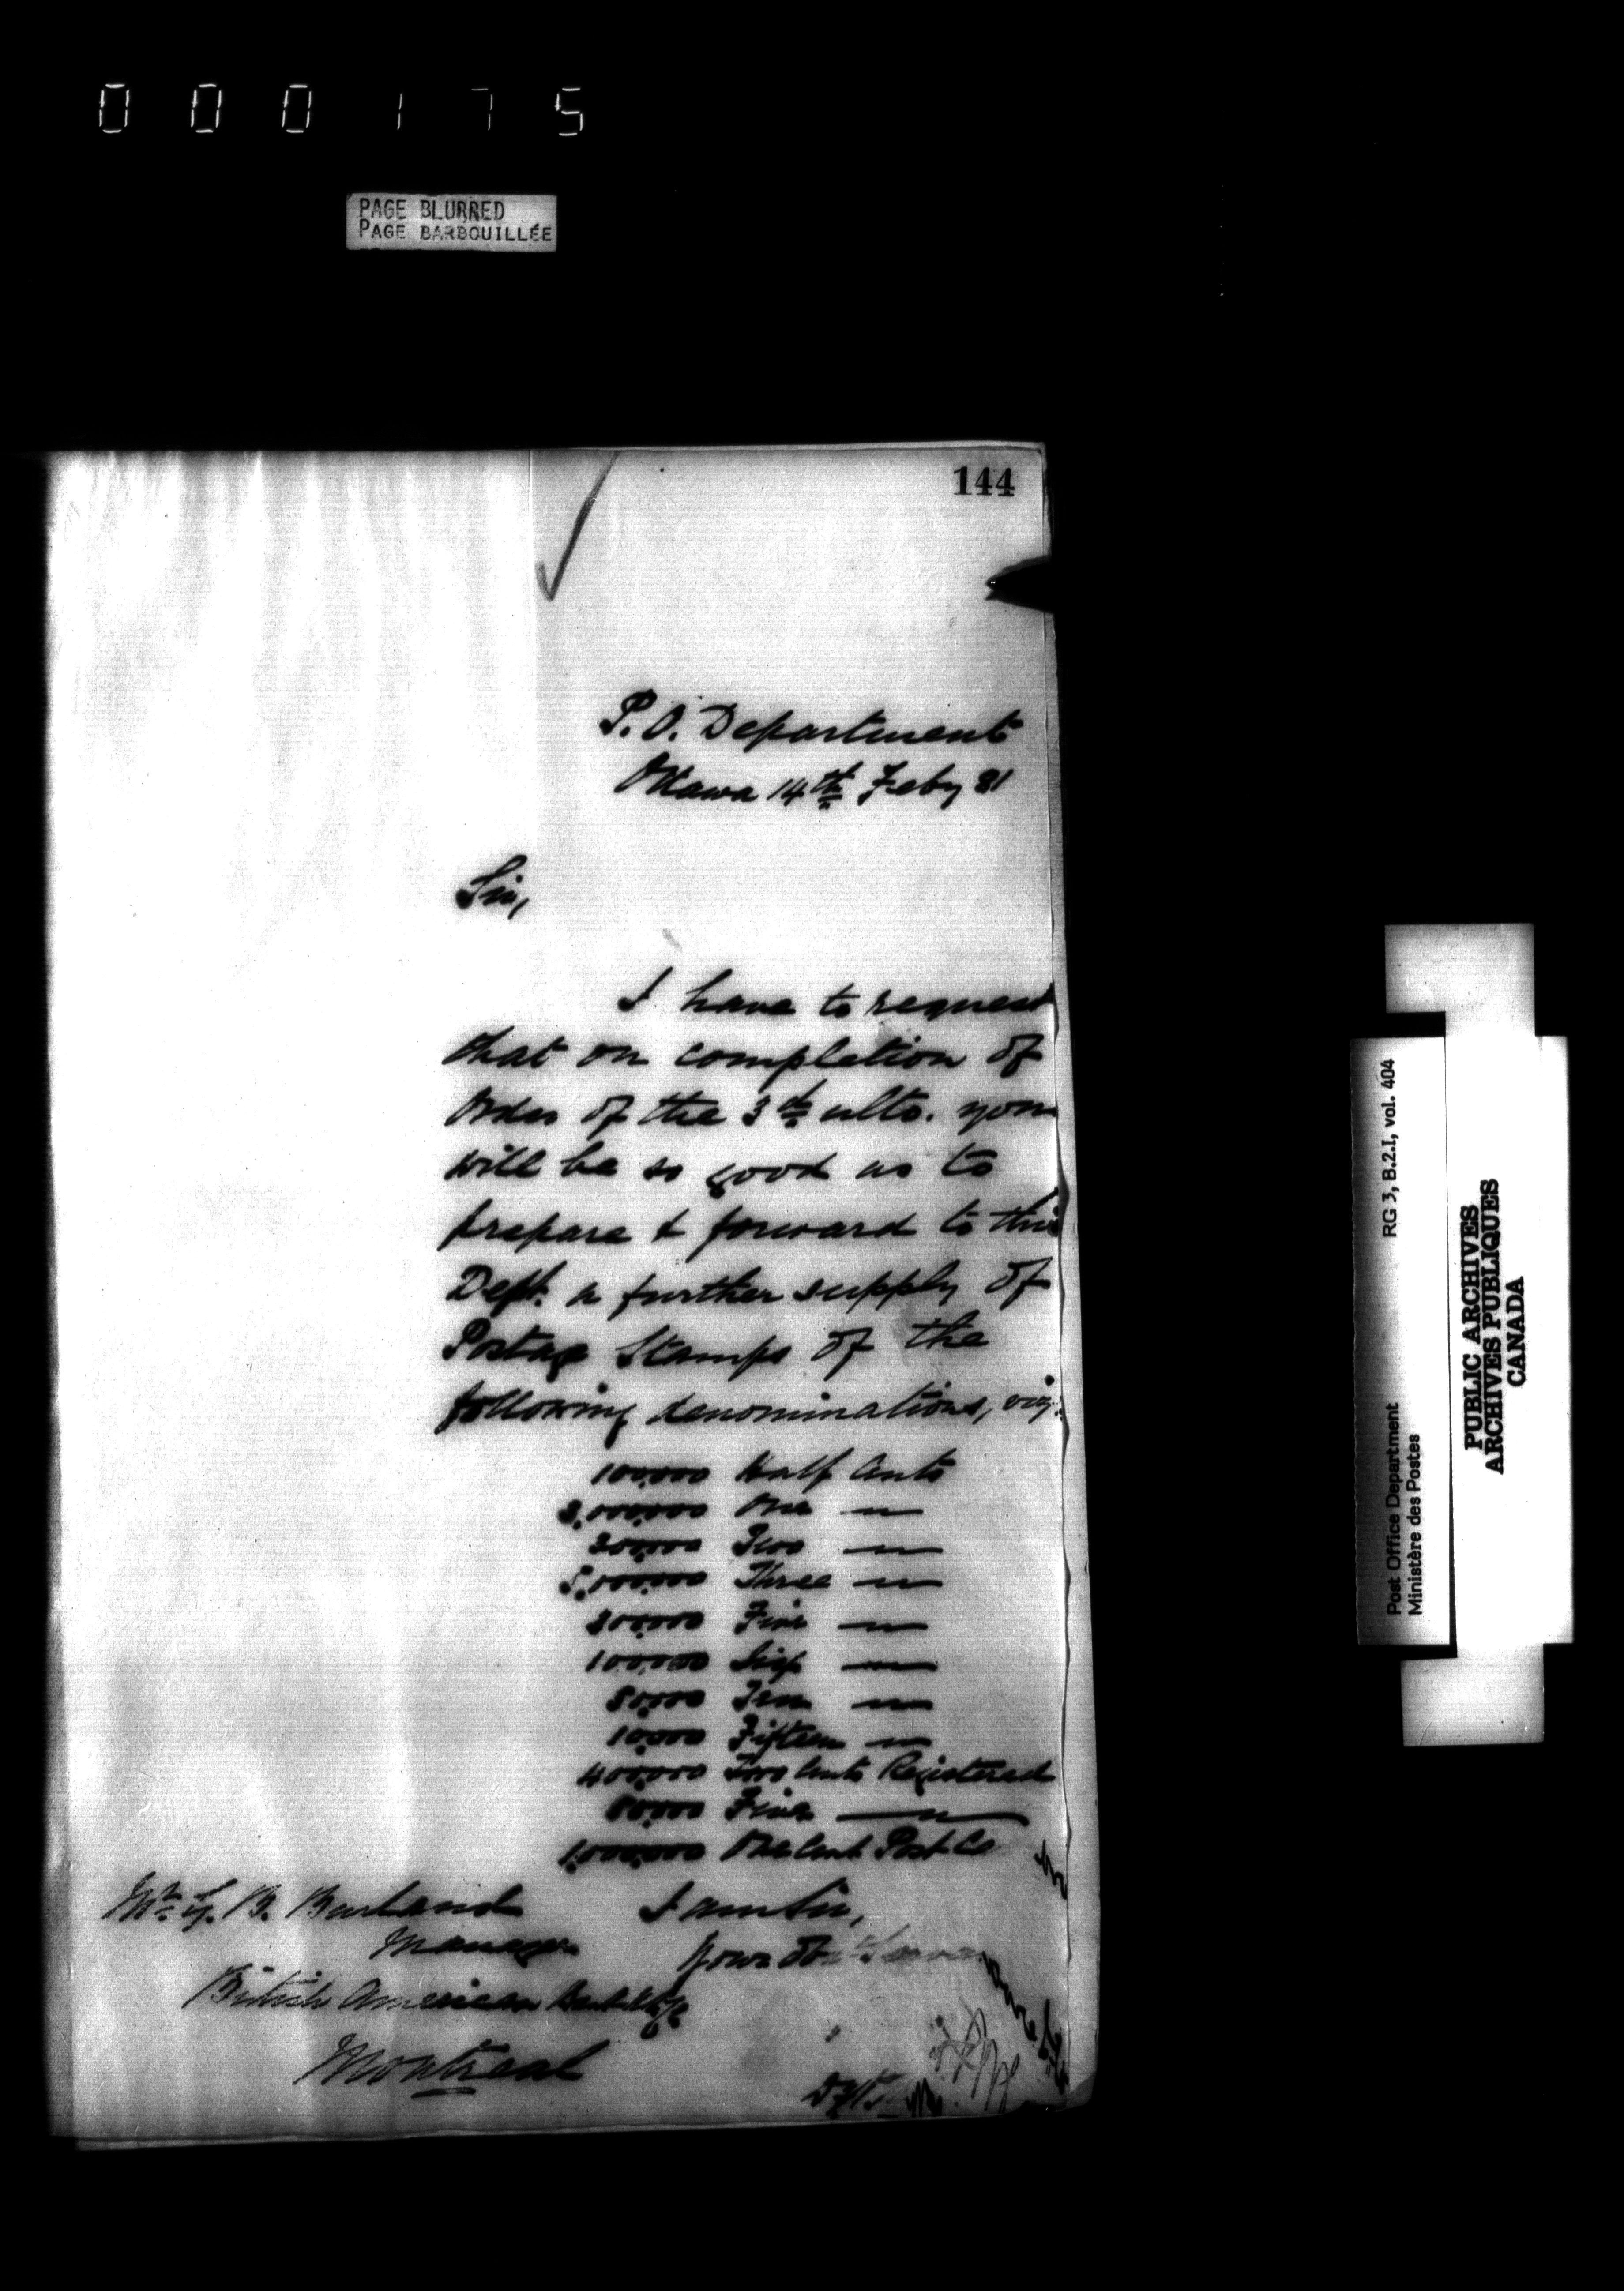 000175
PAGE BLURRED
PAGE BARBOUILLÉE
144
P.O. Department
Ottawa 14th Feby 81
Sir,
I have to request
that on completion of
Order of the 3d ulto. you
will be so good as to
prepare & forward to this
Dept. a further supply of
Postage Stamps of the
following denominations, viz:
100,000 Half Cents
3,000,000 One "
200,000 Two "
5,000,000 Three "
300,000 Five "
100,000 Six "
50,000 Ten "
10,000 Fifteen "
400,000 Two Cents Registered
80,000 Five "
1,000,000 One Cent Post Cd
I am Sir,
Your Obt Servan
Mr G. B. Burland
Manager
British American Bank Note Co
Montreal
RG 3, B.2.I, vol. 404
Post Office Department
Ministère des Postes
PUBLIC ARCHIVES
ARCHIVES PUBLIQUES
CANADA